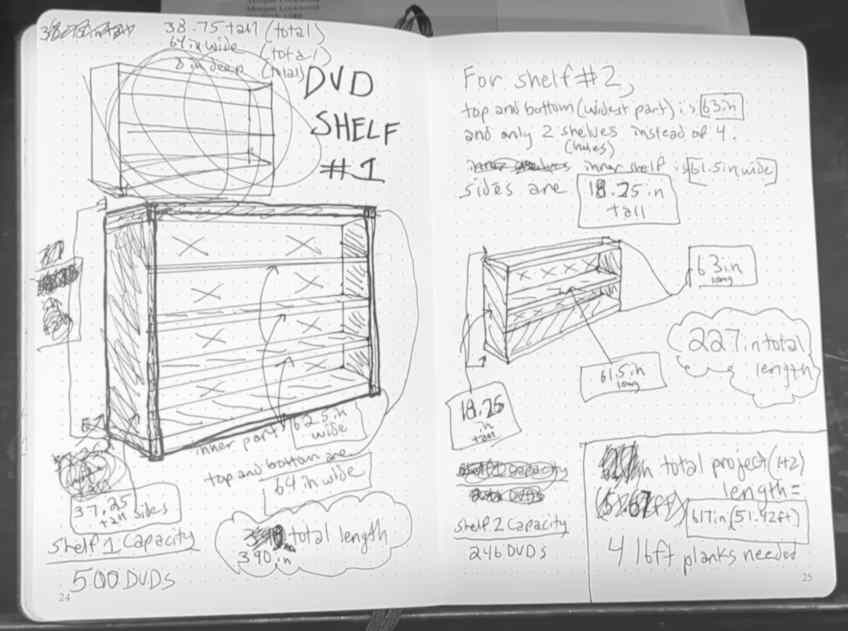 38.75 tall (total)
64 in wide (total)
8 in deep (total)
DVD
SHELF
#1
inner part 62.5 in
wide
top and bottom are
64 in wide
37.25
tall sides
Shelf 1 Capacity
500 DVDs
total length
390 in
24
For shelf #2,
top and bottom (widest part) is 63in
and only 2 shelves instead of 4.
(holes)
inner shelf is 61.5 in wide
sides are 18.25 in
tall
63in
long
227 in total
length
61.5 in
long
18.25
in
tall
shelf 1 Capacity
Shelf 2 Capacity
246 DVDs
in total project (1+2)
length =
617in (51.42ft)
4 16ft planks needed
25